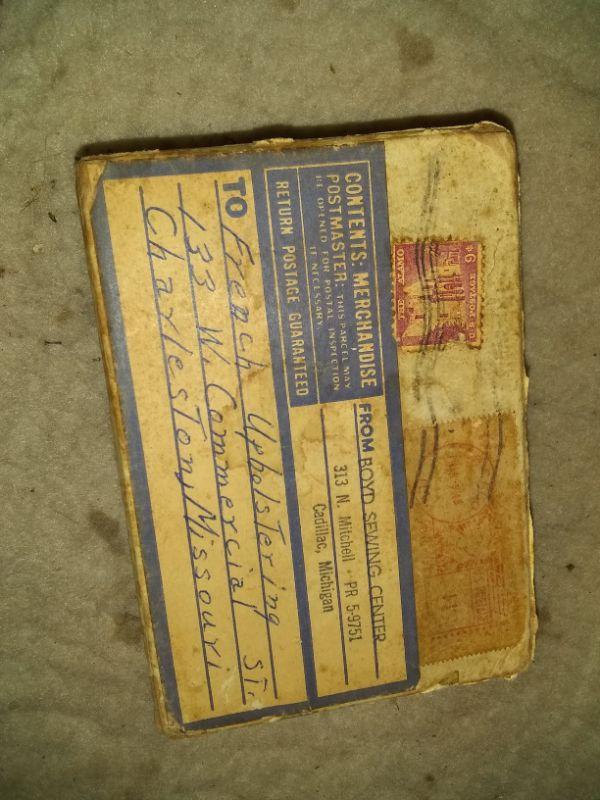 CONTENTS: MERCHANDISE
POSTMASTER: THIS PARCEL MAY
BE OPENED FOR POSTAL INSPECTION
IF NECESSARY.
RETURN POSTAGE GUARANTEED
FROM BOYD SEWING CENTER
313 N. Mitchell · PR 5-9751
Cadillac, Michigan
TO French Upholstering
133 W. Commercial St.
Charleston, Missouri
U.S. POSTAGE 9¢
THE ALAMO